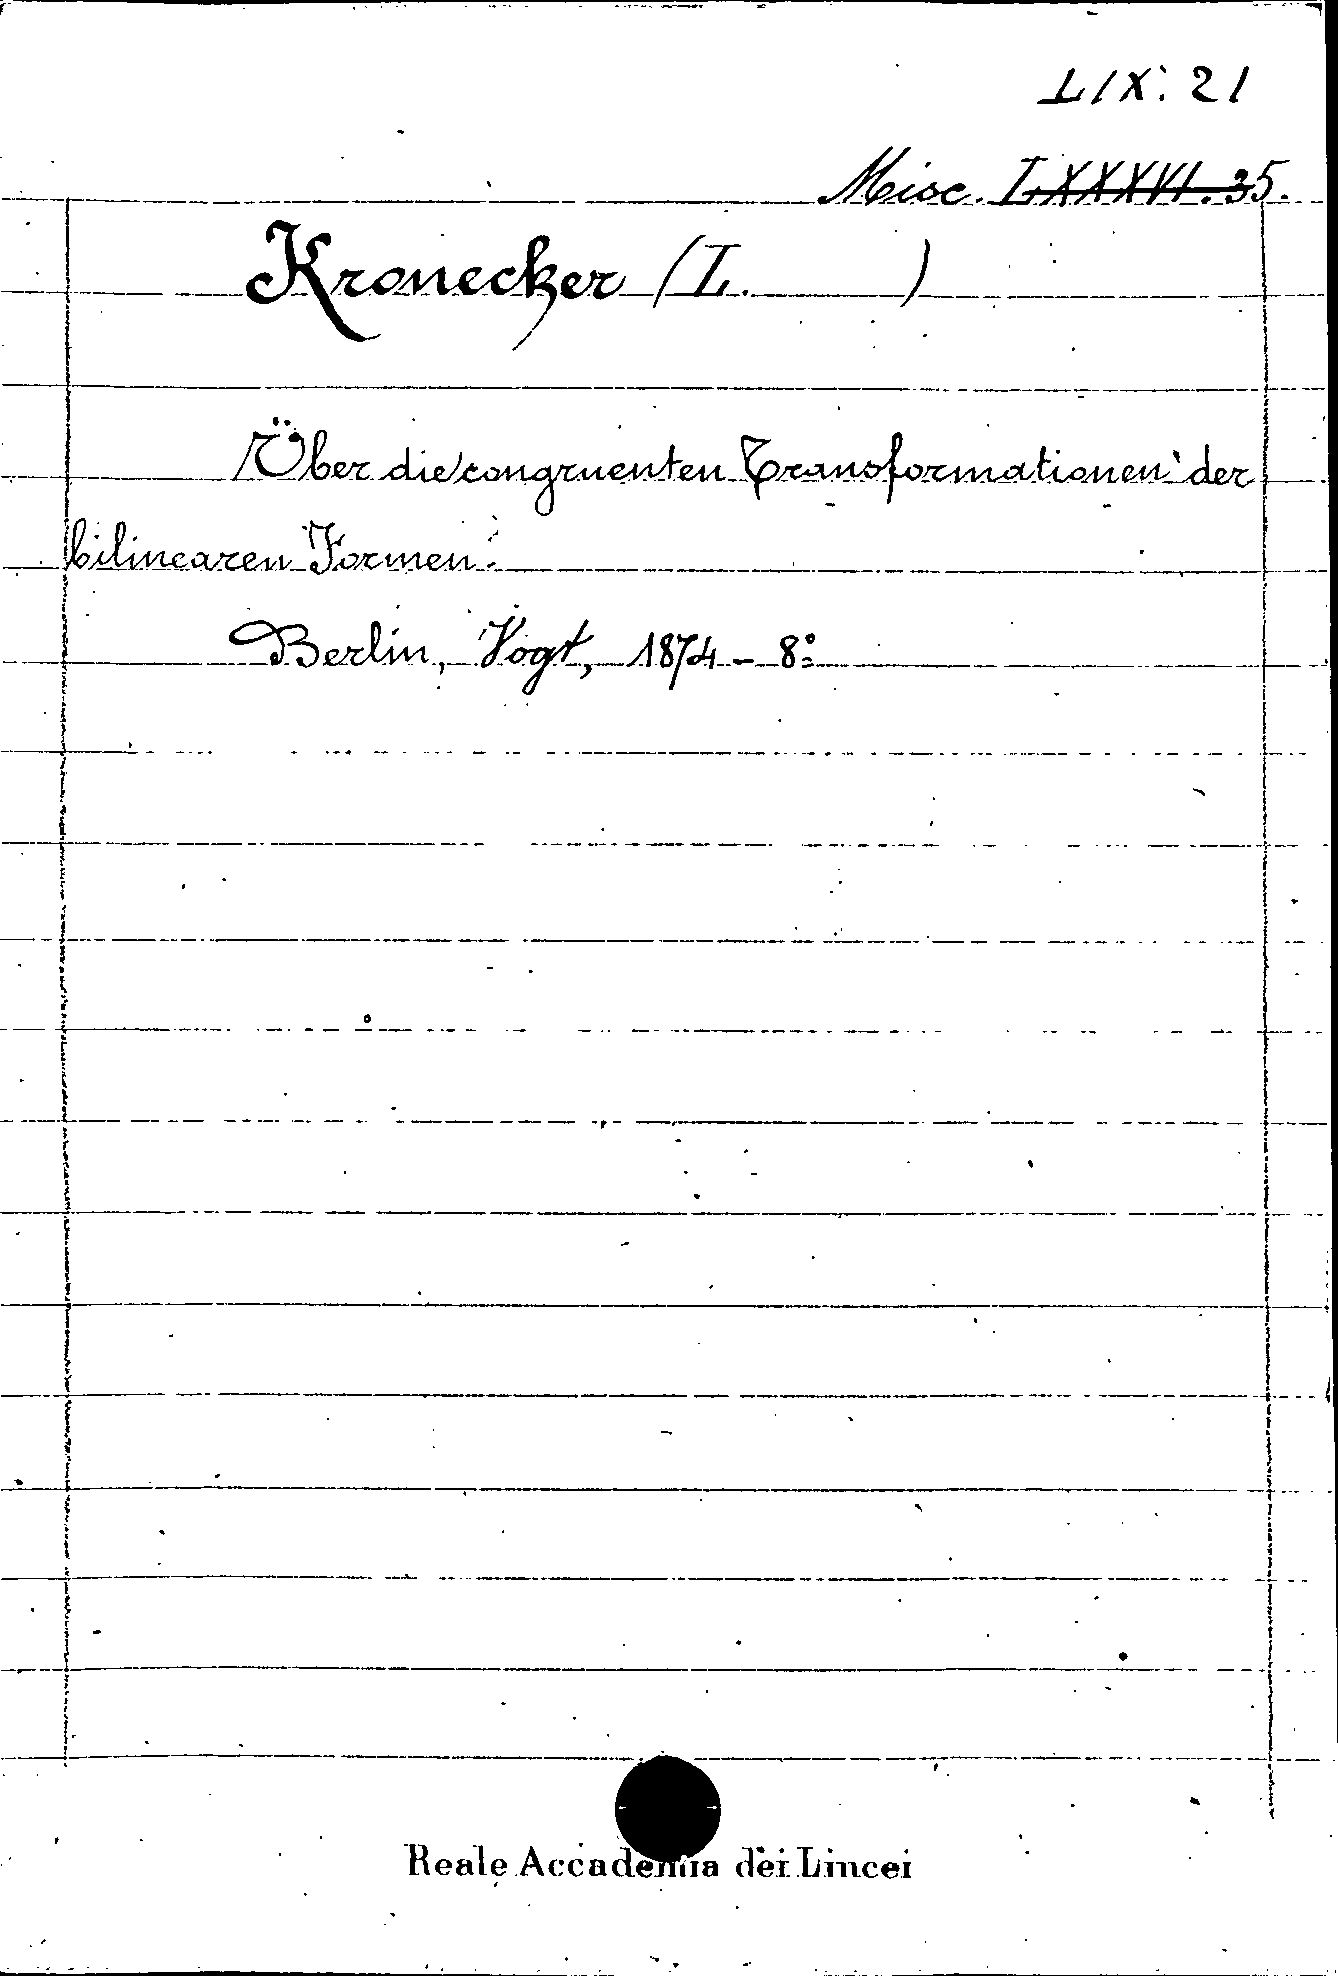 LIX. 21
Misc. LXXXVI. 35.
Kronecker (L. )
Über die congruenten Transformationen der
bilinearen Formen.
Berlin, Vogt, 1874 - 8º
Reale Accademia dei Lincei